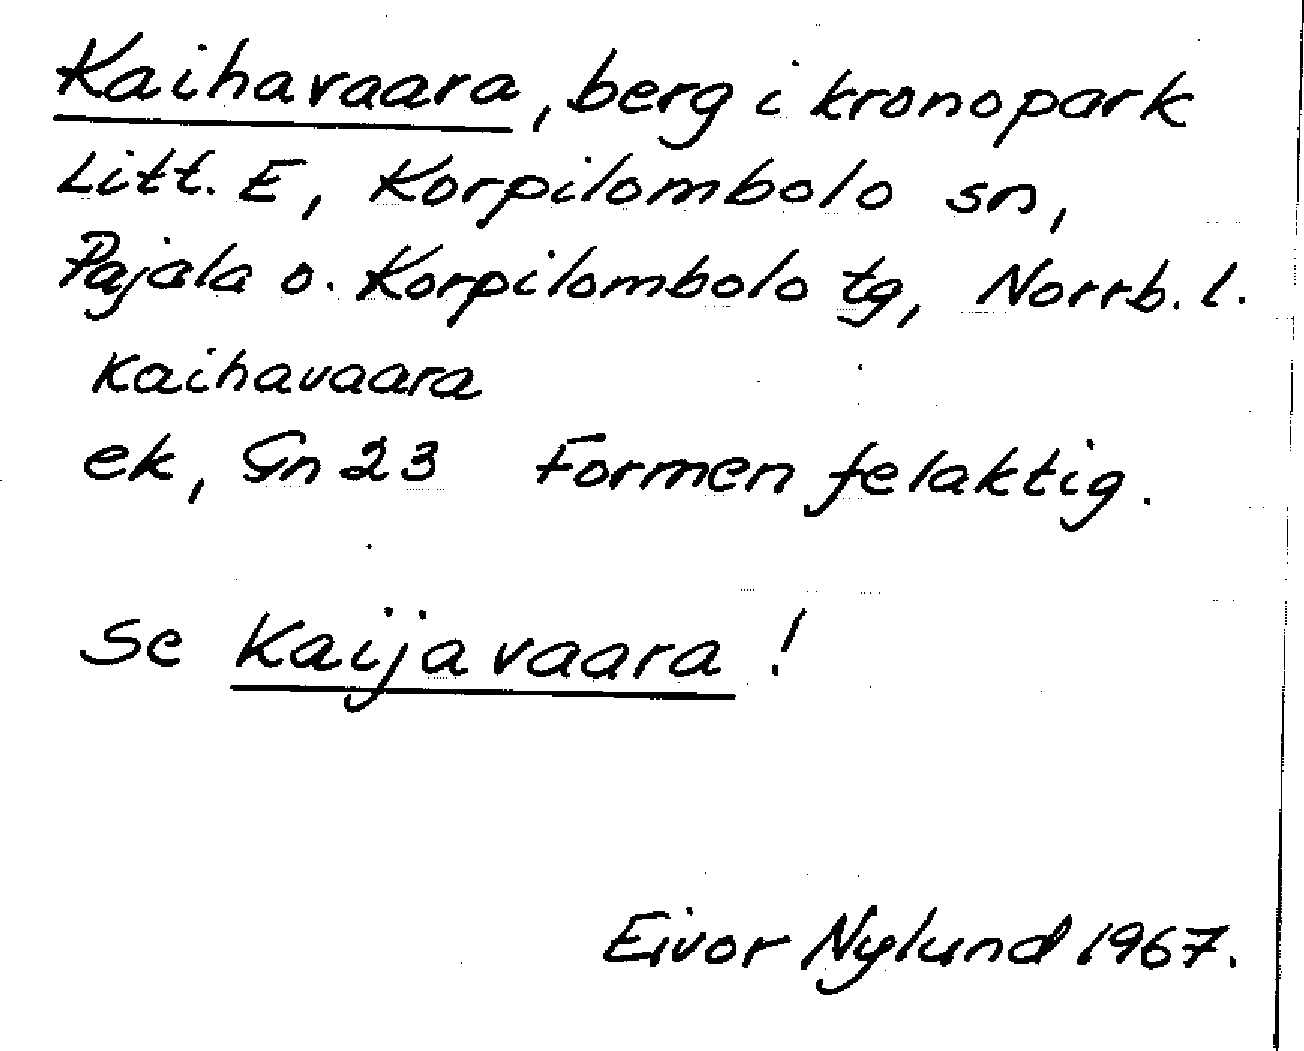 Kaihavaara, berg i kronopark
Litt. E, Korpilombolo sn,
Pajala o. Korpilombolo tg, Norrb. l.
Kaihavaara
ek, Gn 23 Formen felaktig.
Se Kaijavaara!
Eivor Nylund 1967.